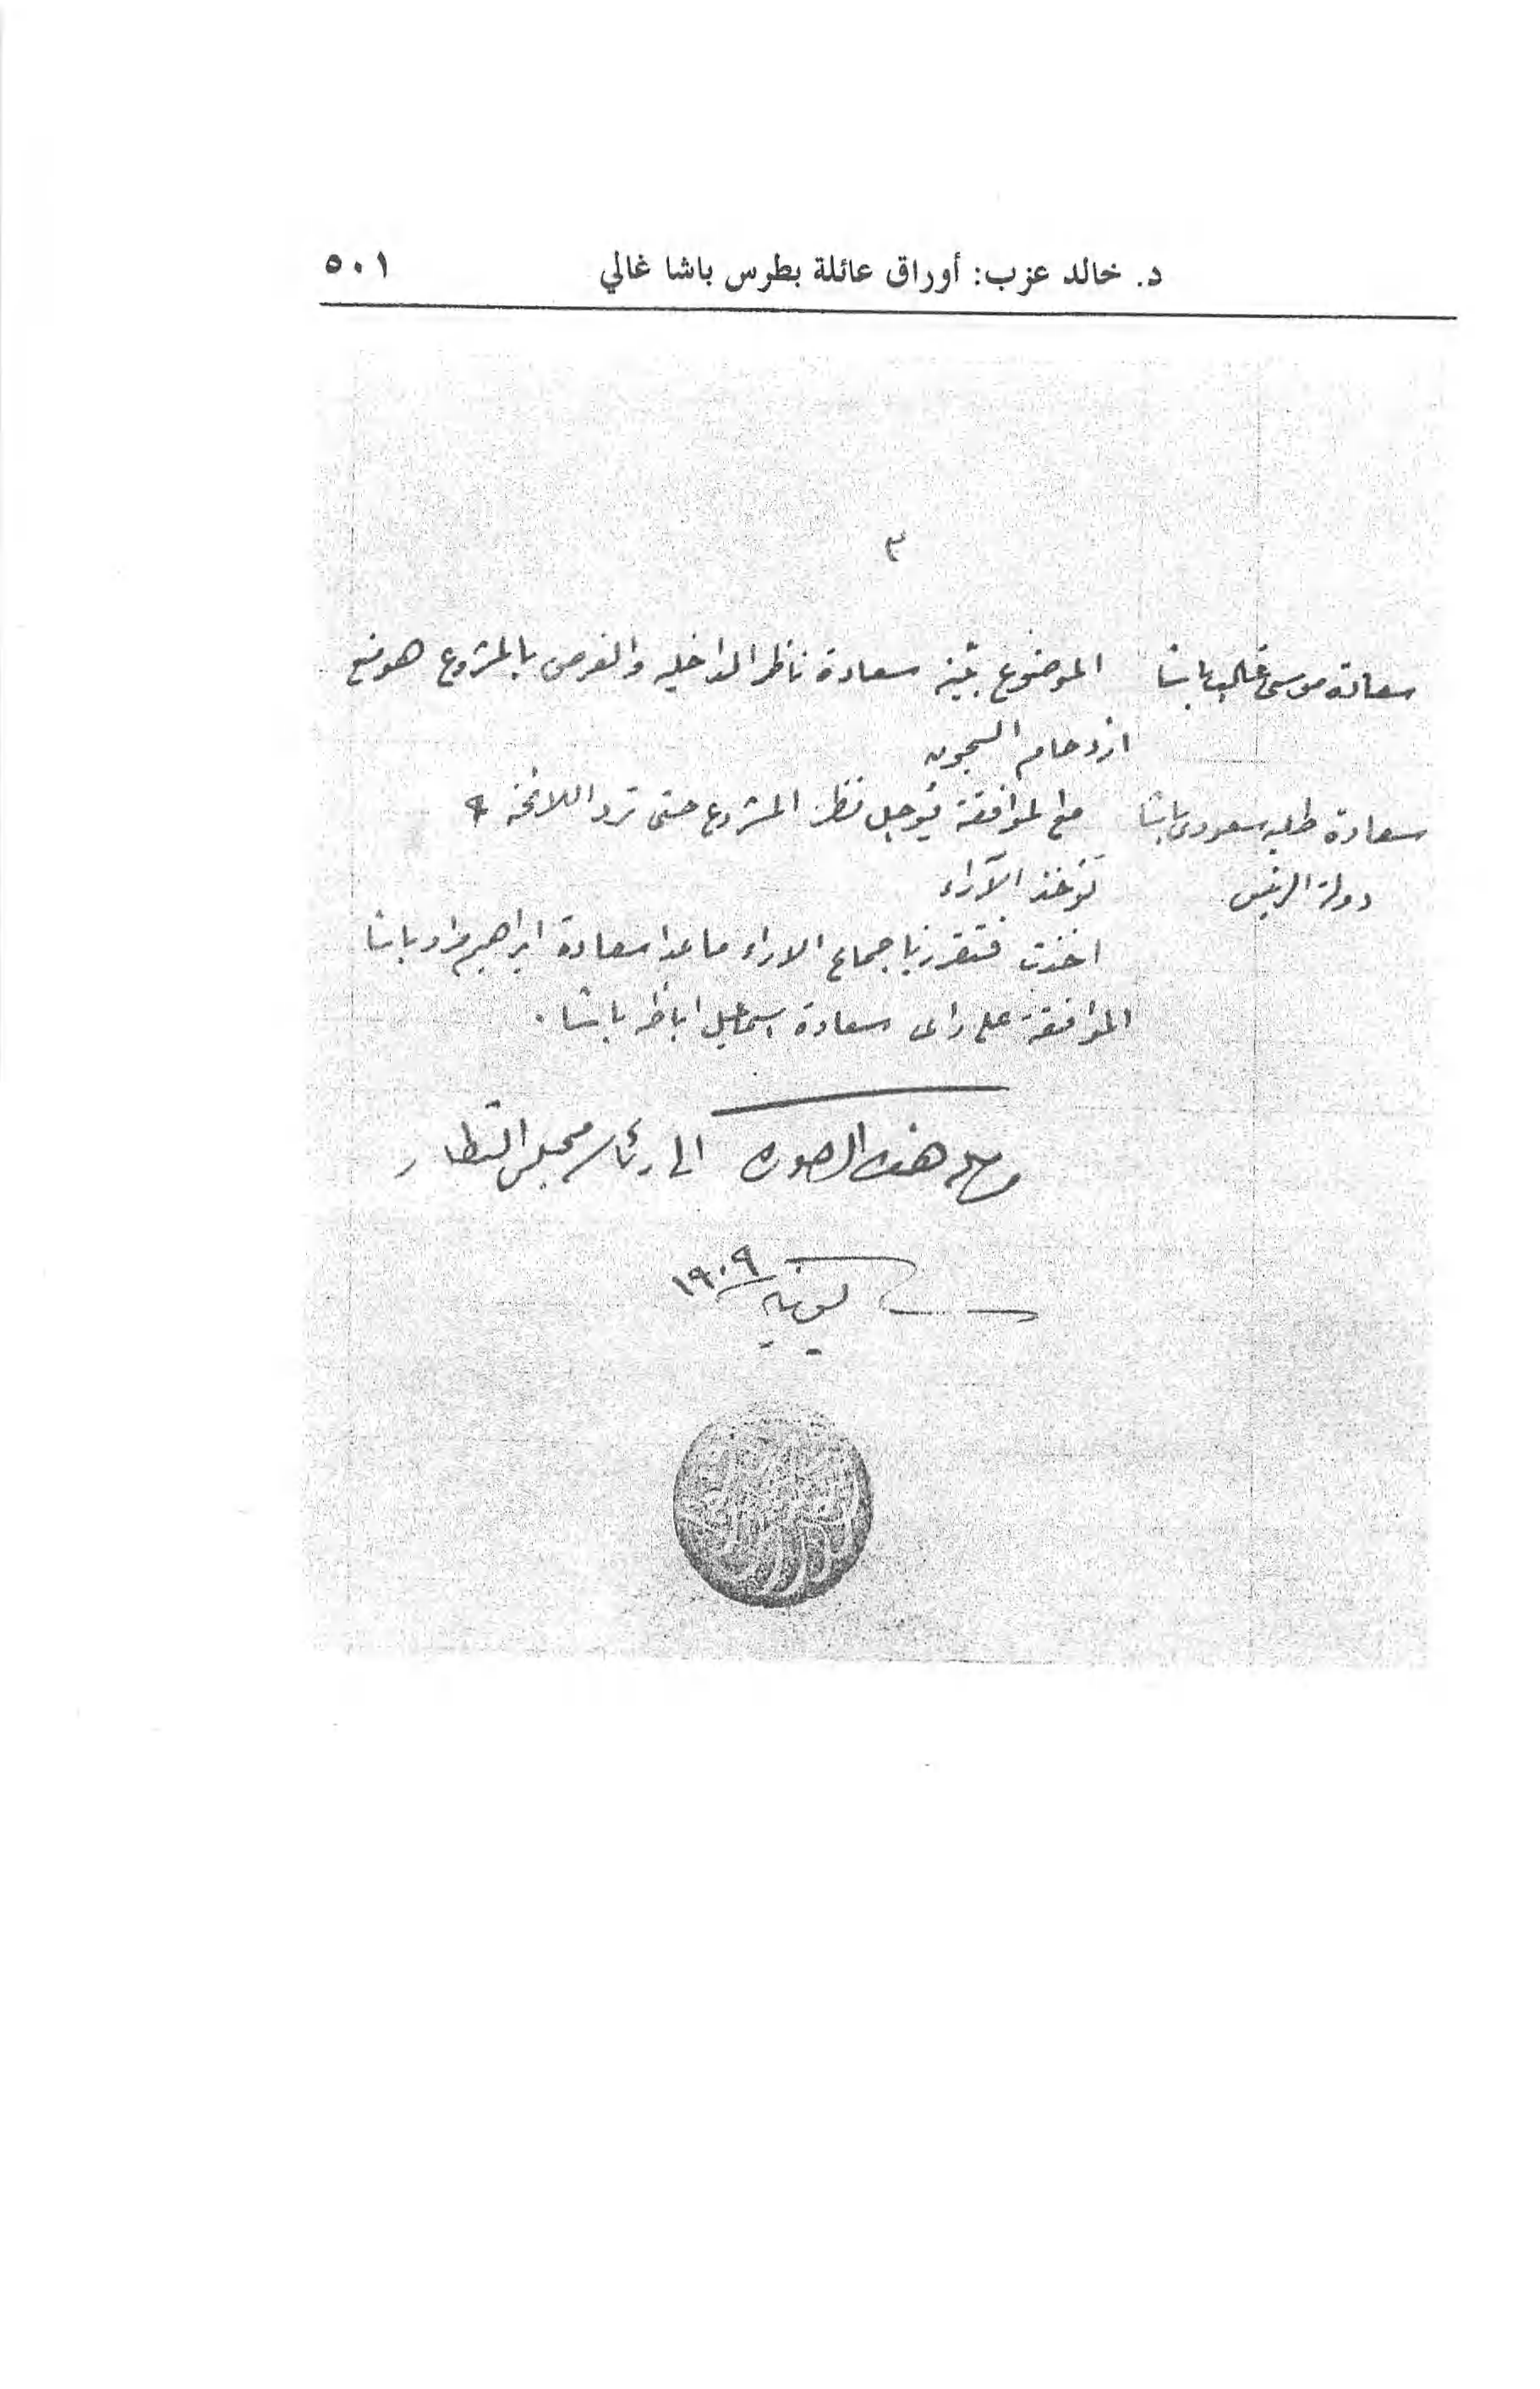 د. خالد عزب: أوراق عائلة بطرس باشا غالي ٥٠١
٣
سعادة موسى غالب باشا الموضوع بيّنه سعادة ناظر الداخليه والغرض بالمشروع هو منع
ازدحام السجون
سعادة طلبه سعودى باشا مع الموافقة يؤجل نظر المشروع حتى ترد اللائحة
دولة الرئيس تؤخذ الآراء
اخذت فتقرر باجماع الاراء ماعدا سعادة ابراهيم مراد باشا
الموافقة على راى سعادة اسماعيل اباظه باشا .
هذه الصورة الى رئاسة مجلس النظار
يونيه ١٩٠٩